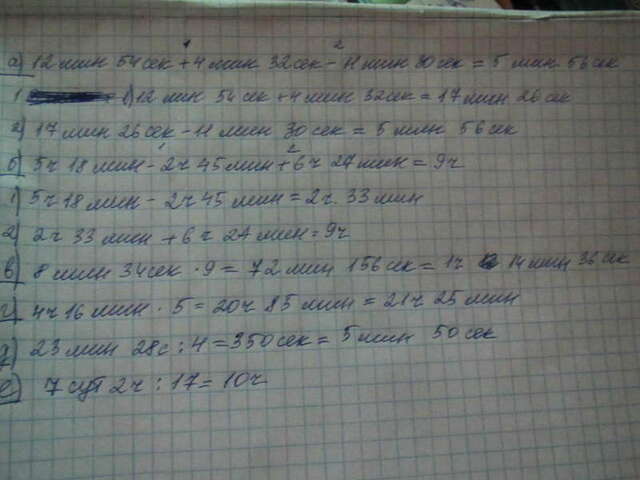 1 2
а) 12 мин 54 сек + 4 мин 32 сек - 11 мин 30 сек = 5 мин 56 сек
1 1) 12 мин 54 сек + 4 мин 32 сек = 17 мин 26 сек
2) 17 мин 26 сек - 11 мин 30 сек = 5 мин 56 сек
1 2
б) 5ч 18 мин - 2ч 45 мин + 6ч 27 мин = 9ч
1) 5ч 18 мин - 2ч 45 мин = 2ч 33 мин
2) 2ч 33 мин + 6ч 27 мин = 9ч
в) 8 мин 34 сек · 9 = 72 мин 156 сек = 1ч 14 мин 36 сек
г) 4ч 16 мин · 5 = 20ч 85 мин = 21ч 25 мин
д) 23 мин 28с : 4 = 350 сек = 5 мин 50 сек
е) 7 сут 2ч : 17 = 10ч